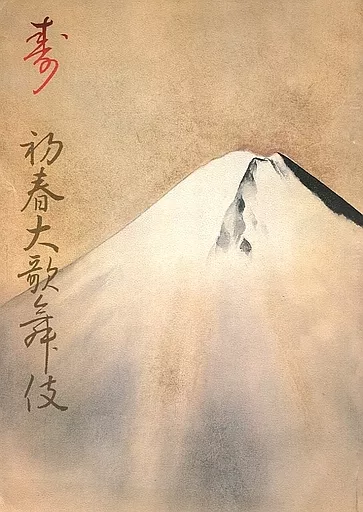 寿
初春大歌舞伎